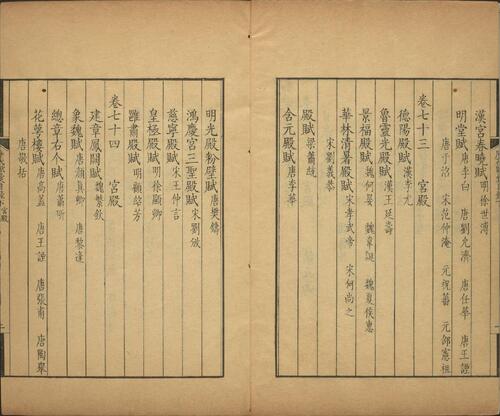 漢宮春曉賦明徐世溥
明堂賦唐李白 唐劉允濟 唐任華 唐王諲
唐于沼 宋范仲淹 元祝蕃 元郤憲祖
卷七十三 宮殿
德陽殿賦漢李尤
魯靈光殿賦漢王延壽
景福殿賦魏何晏 魏韋誕 魏夏侯惠
華林清暑殿賦宋孝武帝 宋何尚之
宋劉義恭
殿賦梁蕭統
含元殿賦唐李華
明光殿粉壁賦唐樊鑄
鴻慶宮三聖殿賦宋劉攽
慈寧殿賦宋王仲言
皇極殿賦明徐顯卿
雝肅殿賦明顧起芳
卷七十四 宮殿
建章鳳闕賦魏繁欽
象魏賦唐顏真卿 唐黎逢
總章右个賦唐蕭昕
花萼樓賦唐高蓋 唐王諲 唐張甫 唐陶舉
唐敬括
宮殿
二